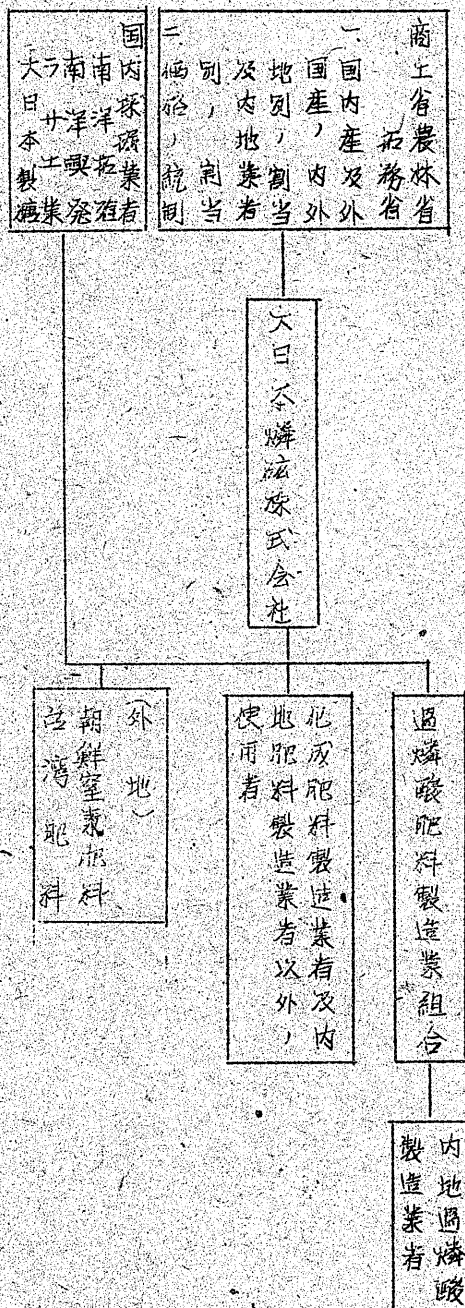 商工省農林省
拓務省
一、国内産及外
国産ノ内外
地別ノ割当
及内地業者
別ノ割当
二、価格ノ統制
国内採礦業者
南洋拓殖
南洋興発
ラサ工業
大日本製糖
大日本燐砿株式会社
過燐酸肥料製造業組合
化成肥料製造業者及内
地肥料製造業者以外ノ
使用者
(外地)
朝鮮窒素肥料
台湾肥料
内地過燐酸
製造業者